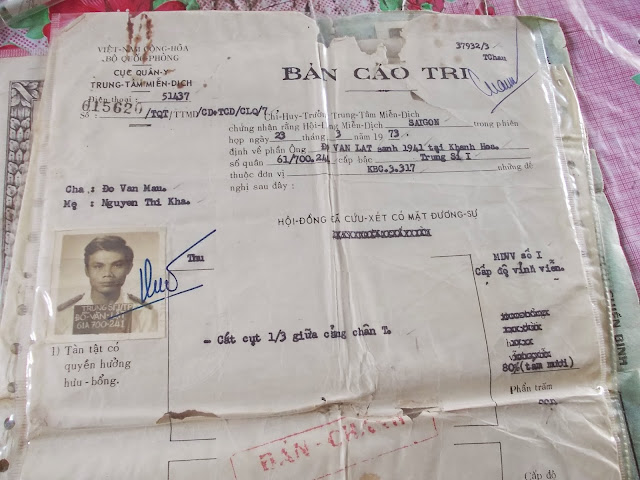 VIỆT-NAM CỘNG-HÒA
BỘ QUỐC-PHÒNG
CỤC QUÂN-Y
TRUNG-TÂM MIỄN-DỊCH
Điện thoại : 51437
Số : 015620 /TQT/TTMD/CD+TCD/CLQ/7
37932/3
TChau
BẢN CÁO TRI
Chỉ-Huy-Trưởng Trung-Tâm Miễn-Dịch
chứng nhận rằng Hội-Đồng Miễn-Dịch SAIGON trong phiên
họp ngày 23 tháng 3 năm 1973
định về phần Ông ĐO VAN LAT sanh 1941 tại Khanh Hoa.
số quân 61/700.241 cấp bậc Trung Sĩ I
thuộc đơn vị KBC.3.317 những đô
nghi sau đây :
Cha : Đo Van Mau.
Mẹ : Nguyen Thi Kha.
HỘI-ĐỒNG ĐÃ CỨU-XÉT CÓ MẶT ĐƯƠNG-SỰ
Thu
TRUNG SI
ĐO-VAN
61A700-241
1) Tàn tật có
quyền hưởng
hưu-bổng.
- Cắt cụt 1/3 giữa cẳng chân T.
MDVV số I
Cấp độ vĩnh viễn.
80% (tam mươi)
Phần trăm
BẢN-CHÁNH
Cấp độ